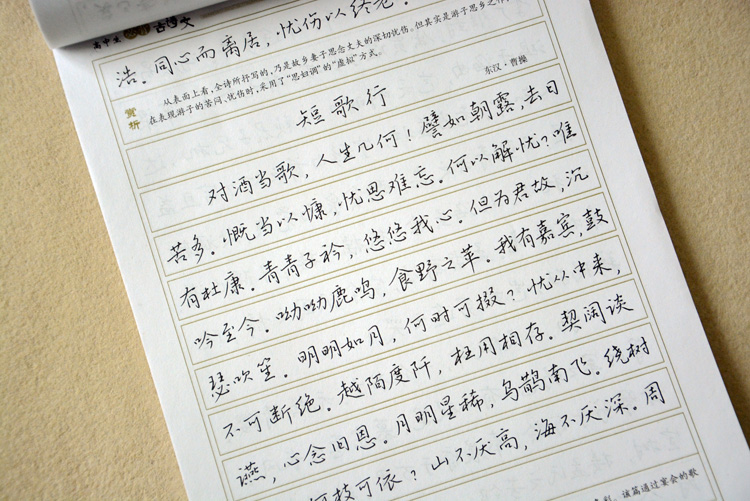 高中生 古诗文
浩。同心而离居，忧伤以终老。
赏析
从表面上看，全诗所抒写的，乃是故乡妻子思念丈夫的深切忧伤。但其实是游子思乡之作
在表现游子的苦闷、忧伤时，采用了“思妇调”的“虚拟”方式。
东汉·曹操
短歌行
对酒当歌，人生几何！譬如朝露，去日
苦多。慨当以慷，忧思难忘。何以解忧？唯
有杜康。青青子衿，悠悠我心。但为君故，沉
吟至今。呦呦鹿鸣，食野之苹。我有嘉宾，鼓
瑟吹笙。明明如月，何时可掇？忧从中来，
不可断绝。越陌度阡，枉用相存。契阔谈
䜩，心念旧恩。月明星稀，乌鹊南飞。绕树
何枝可依？山不厌高，海不厌深。周
该篇通过宴会的歌